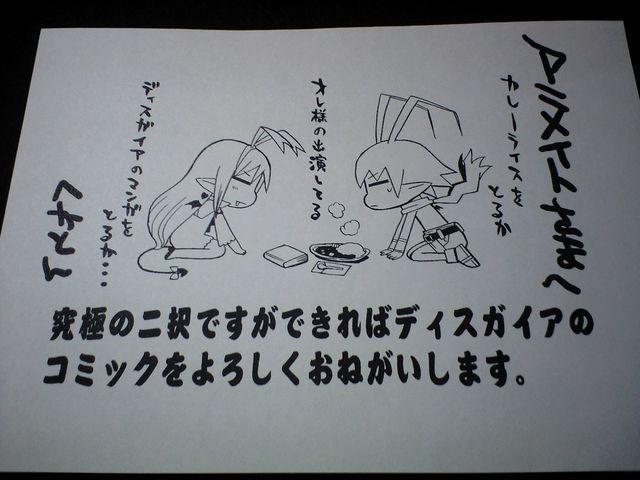 アニメイトさまへ
カレーライスを
とるか
オレ様の出演してる
ディスガイアのマンガを
とるか・・・
へかとん
究極の二択ですができればディスガイアの
コミックをよろしくおねがいします。